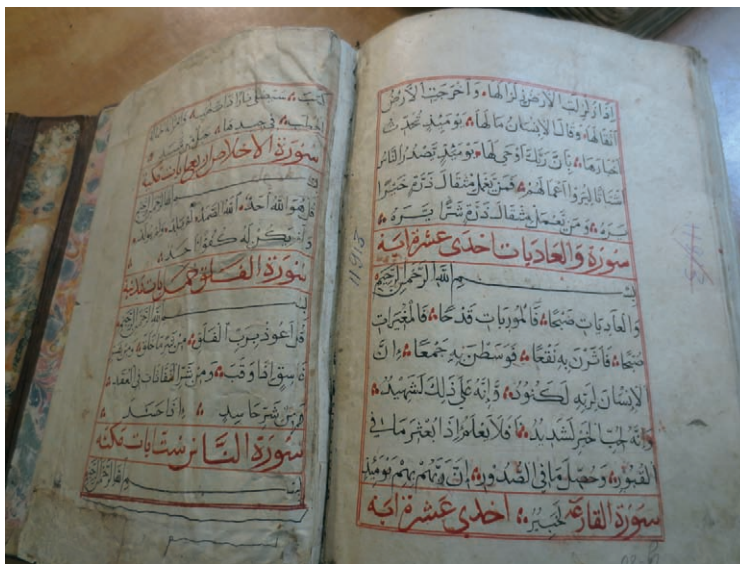 إذا زلزلت الأرض زلزالها وأخرجت الأرض
أثقالها وقال الإنسان مالها يومئذ تحدث
أخبارها بأن ربك أوحى لها يومئذ يصدر الناس
أشتاتا ليروا أعمالهم فمن يعمل مثقال ذرة خيرا
يره ومن يعمل مثقال ذرة شرا يره
سورة والعاديات احدى عشرة اية
بسم الله الرحمن الرحيم
والعاديات ضبحا فالموريات قدحا فالمغيرات
صبحا فأثرن به نقعا فوسطن به جمعا إن
الإنسان لربه لكنود وإنه على ذلك لشهيد
وإنه لحب الخير لشديد أفلا يعلم إذا بعثر ما في
القبور وحصل ما في الصدور إن ربهم بهم يومئذ
سورة القارعة لخبير احدى عشرة اية
كسب سيصلى نارا ذات لهب وامرأته حمالة
الحطب في جيدها حبل من مسد
سورة الاخلاص اربع ايات مكية
بسم الله الرحمن الرحيم
قل هو الله أحد الله الصمد لم يلد ولم يولد
ولم يكن له كفوا أحد
سورة الفلق خمس ايات مدنية
بسم الله الرحمن الرحيم
قل أعوذ برب الفلق من شر ما خلق ومن شر
غاسق إذا وقب ومن شر النفاثات في العقد
ومن شر حاسد إذا حسد
سورة الناس ست ايات مكية
بسم الله الرحمن الرحيم